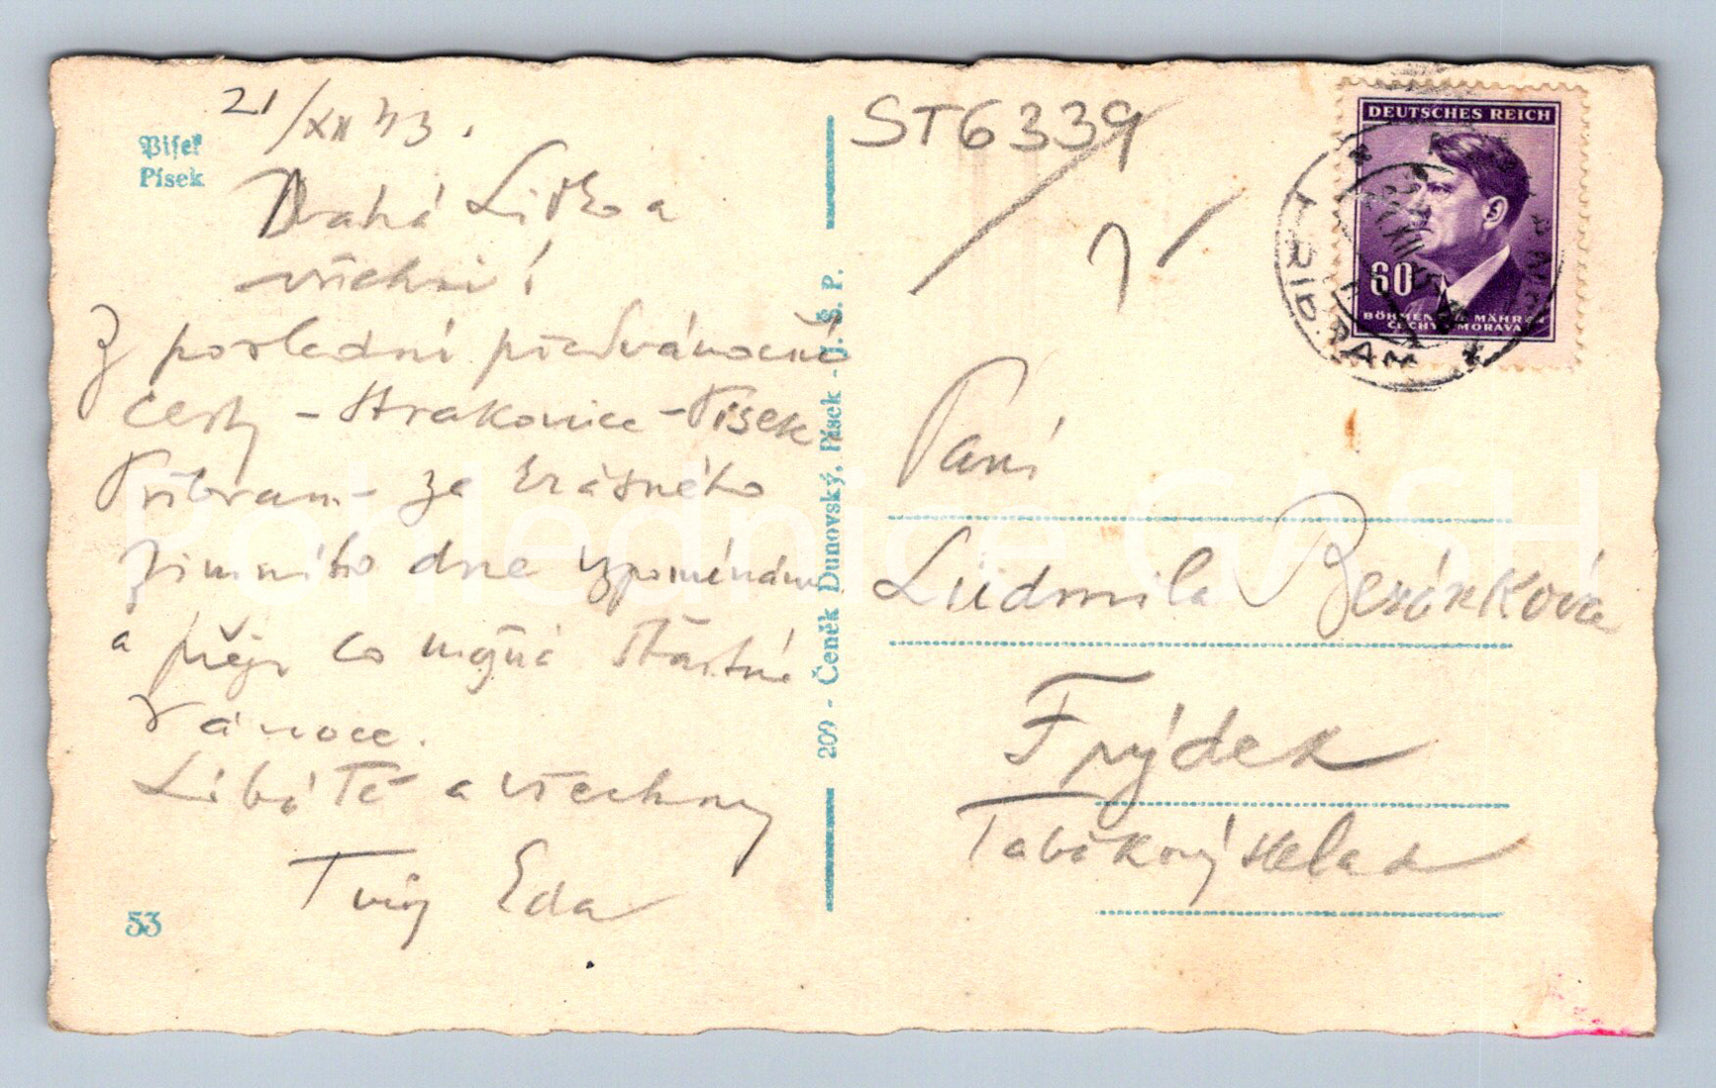 21/XII 43.
Pisek
Písek
Drahá Lidko a
všichni!
Z poslední předvánoční
cesty - Strakonice - Písek
Příbram - za krásného
zimního dne vzpomínám
a přeji co možná šťastné
Vánoce.
Líbá Tě a všechny
Tvůj Eda
53
209 - Čeněk Dunovský, Písek - J. Š. P.
ST6339
DEUTSCHES REICH
60
BÖHMEN U. MÄHREN
ČECHY A MORAVA
Paní
Ludmila
Frýdek
Tabákový sklad
Pohlednice GASH